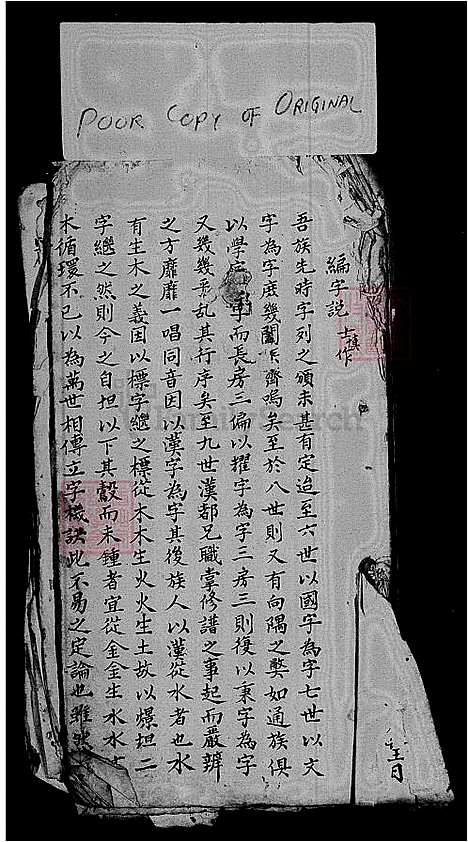 POOR COPY OF ORIGINAL
編字說 士慎作
吾族先時字列之頒未甚有定迨至六世以國字為字七世以文
字為字庶幾闔下齊嗚矣至於八世則又有向隅之獘如通族俱
以學字而長房三偏以擢字為字三房三則復以秉字為字
又幾幾乎乱其行序矣至九世漢都兄職掌修譜之事起而嚴辨
之方靡靡一唱同音因以漢字為字其後族人以漢從水者也水
有生木之義因以標字繼之標從木木生火火生土故以爆坦二
字繼之然則今之自坦以下其縠而未鍾者宜從金金生水水生
木循環不已以為萬世相傳立字機訣此不易之定論也雖然